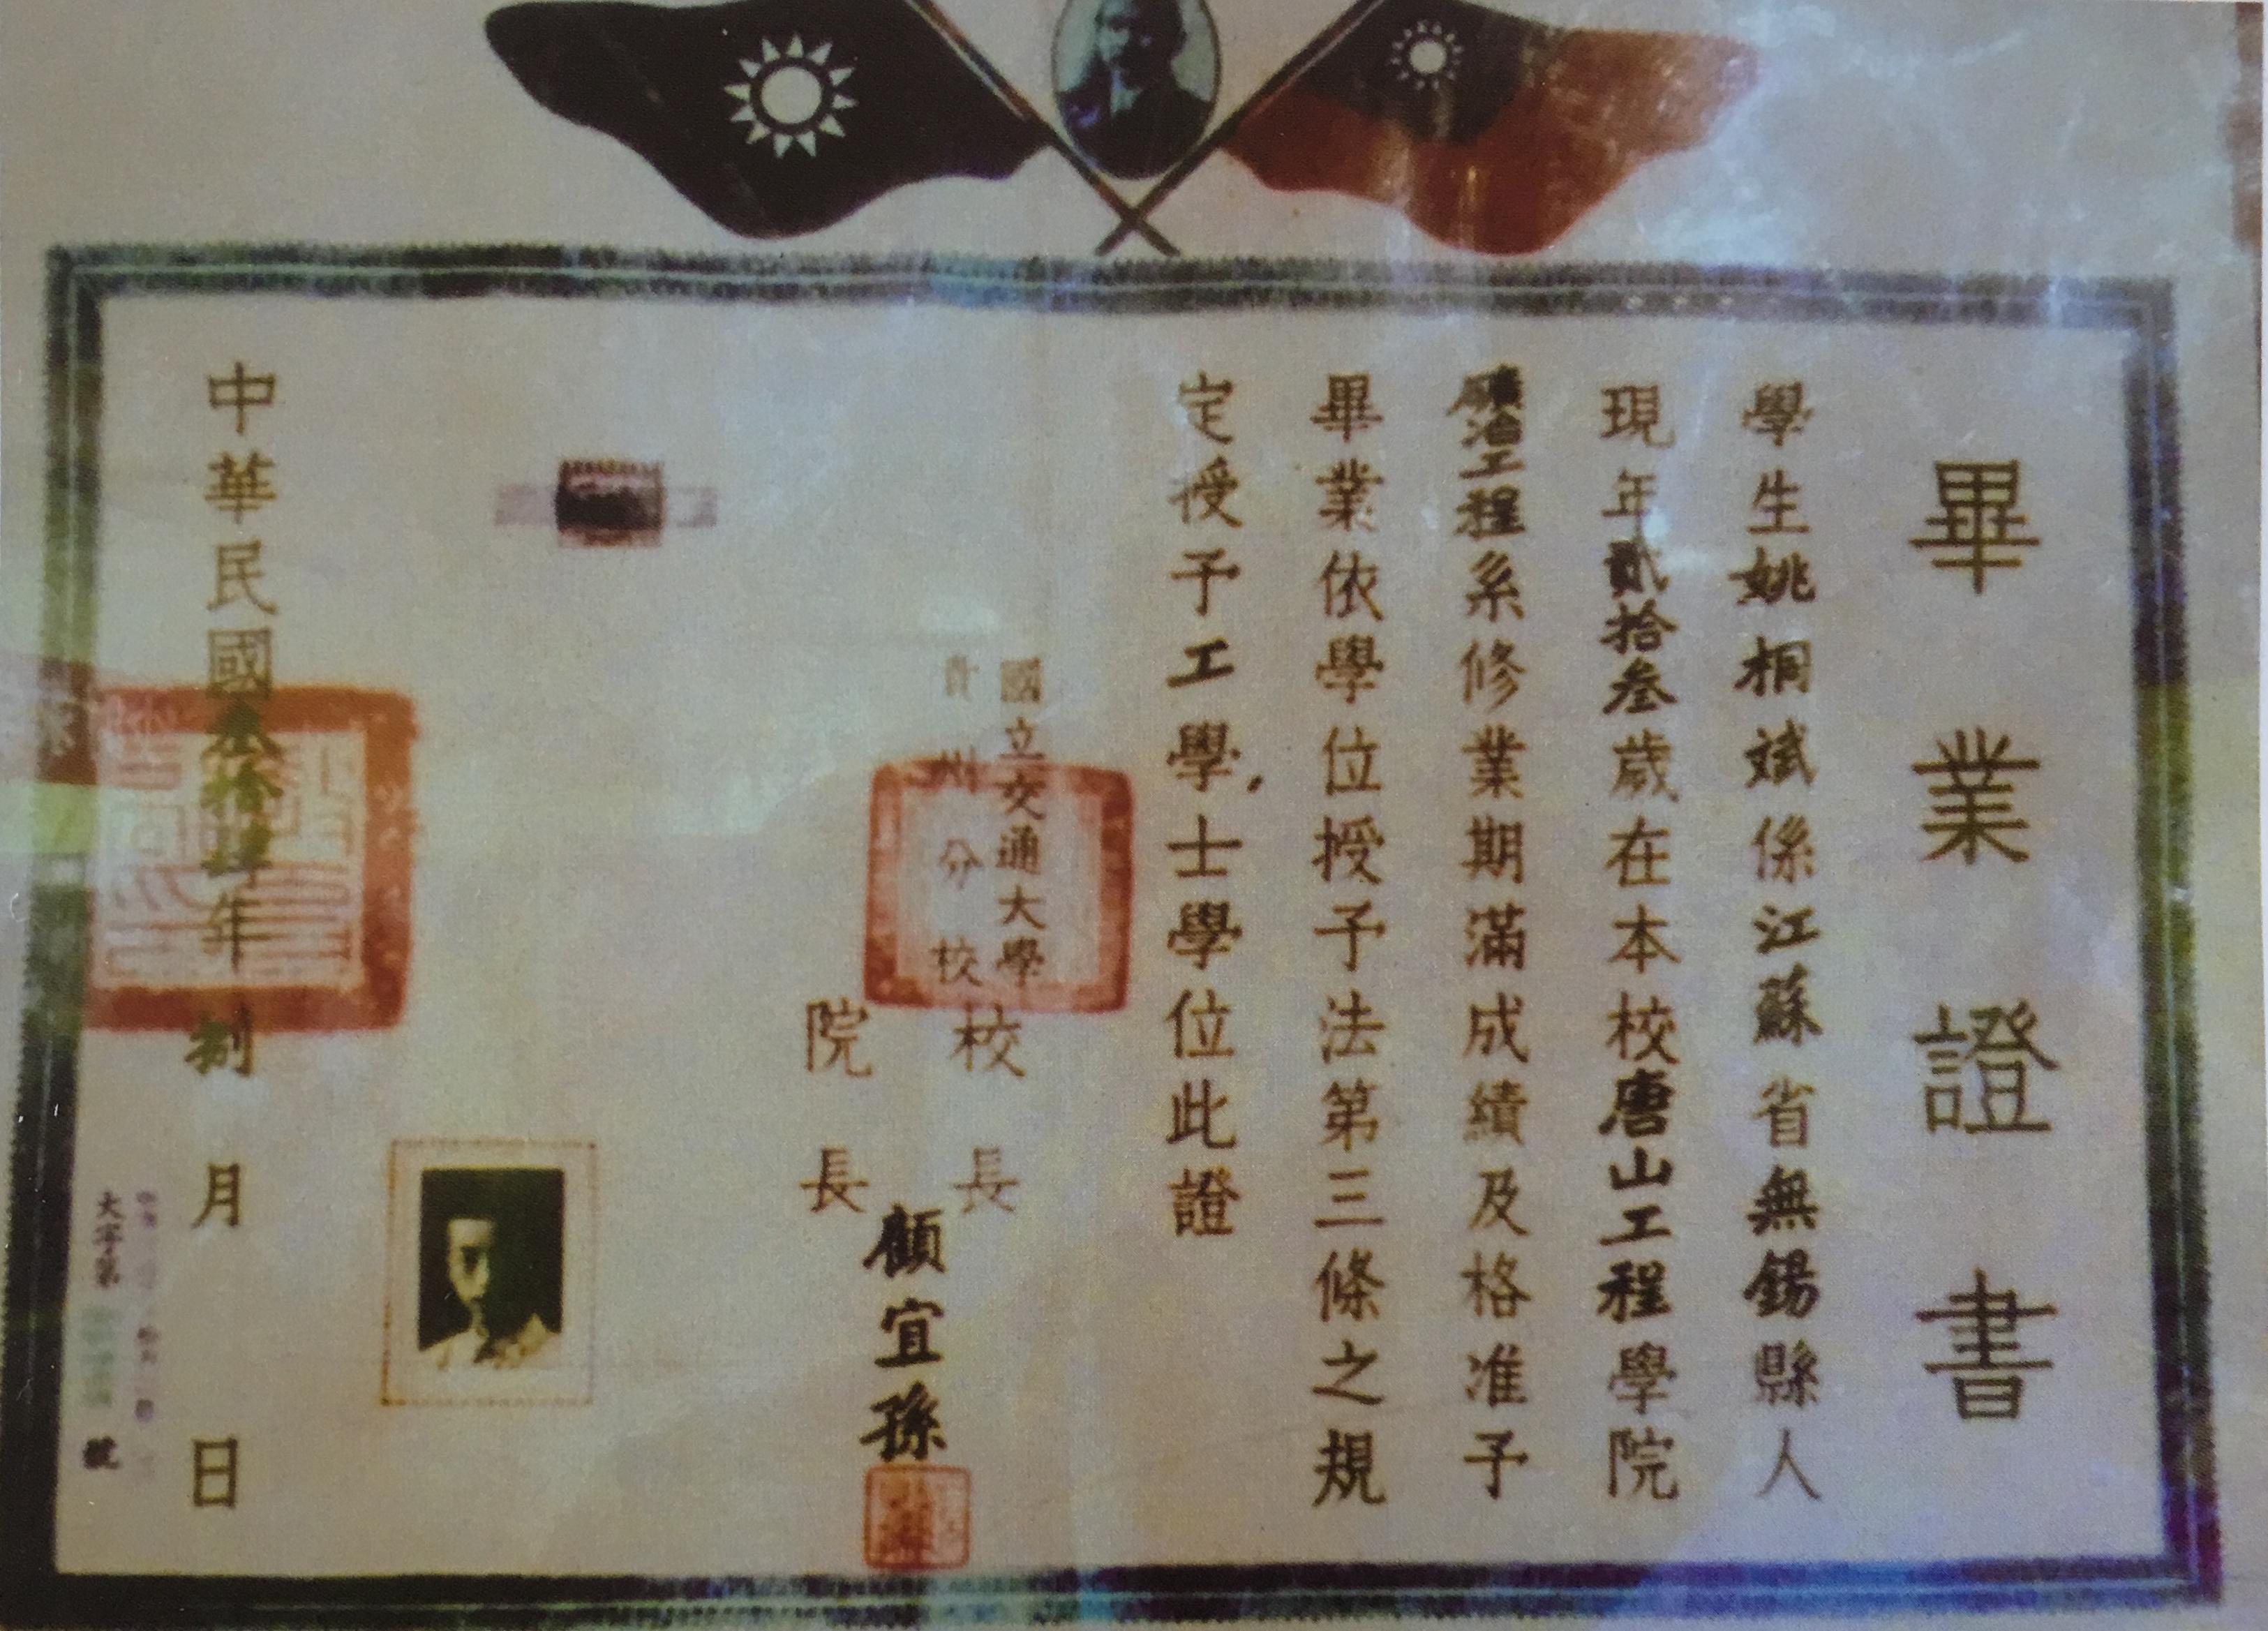 畢業證書
學生姚桐斌係江蘇省無錫縣人
現年貳拾叁歲在本校唐山工程學院
礦冶工程系修業期滿成績及格准予
畢業依學位授予法第三條之規
定授予工學士學位此證
國立交通大學
貴州分校
校長
院長
顧宜孫
中華民國叁拾肆年捌月日
大字第
號